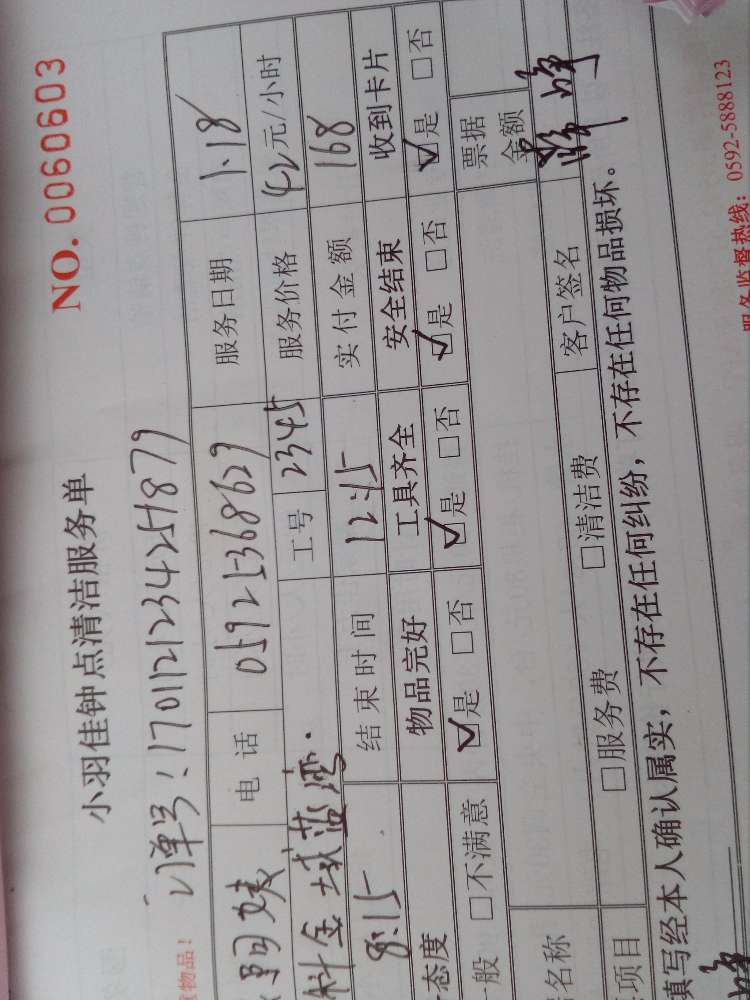 小羽佳钟点清洁服务单
NO. 0060603
物品!
订单号:1701121234251879
电话 05925368629 服务日期 1.18
金域蓝湾. 工号 2345 服务价格 42元/小时
8:15 结束时间 12:15 实付金额 168
态度 物品完好 工具齐全 安全结束 收到卡片
般 □不满意 ☑是 □否 ☑是 □否 ☑是 □否 ☑是 □否
票据金额
名称
项目 □服务费 □清洁费 客户签名
填写经本人确认属实，不存在任何纠纷，不存在任何物品损坏。
服务监督热线：0592-5888123